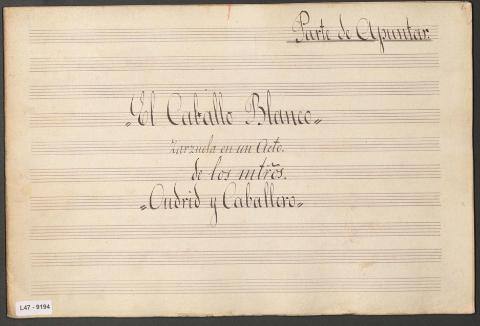 Parte de Apuntar.
"El Caballo Blanco"
Zarzuela en un Acto.
de los mtrõs.
"Oudrid y Caballero"
L47 - 9194